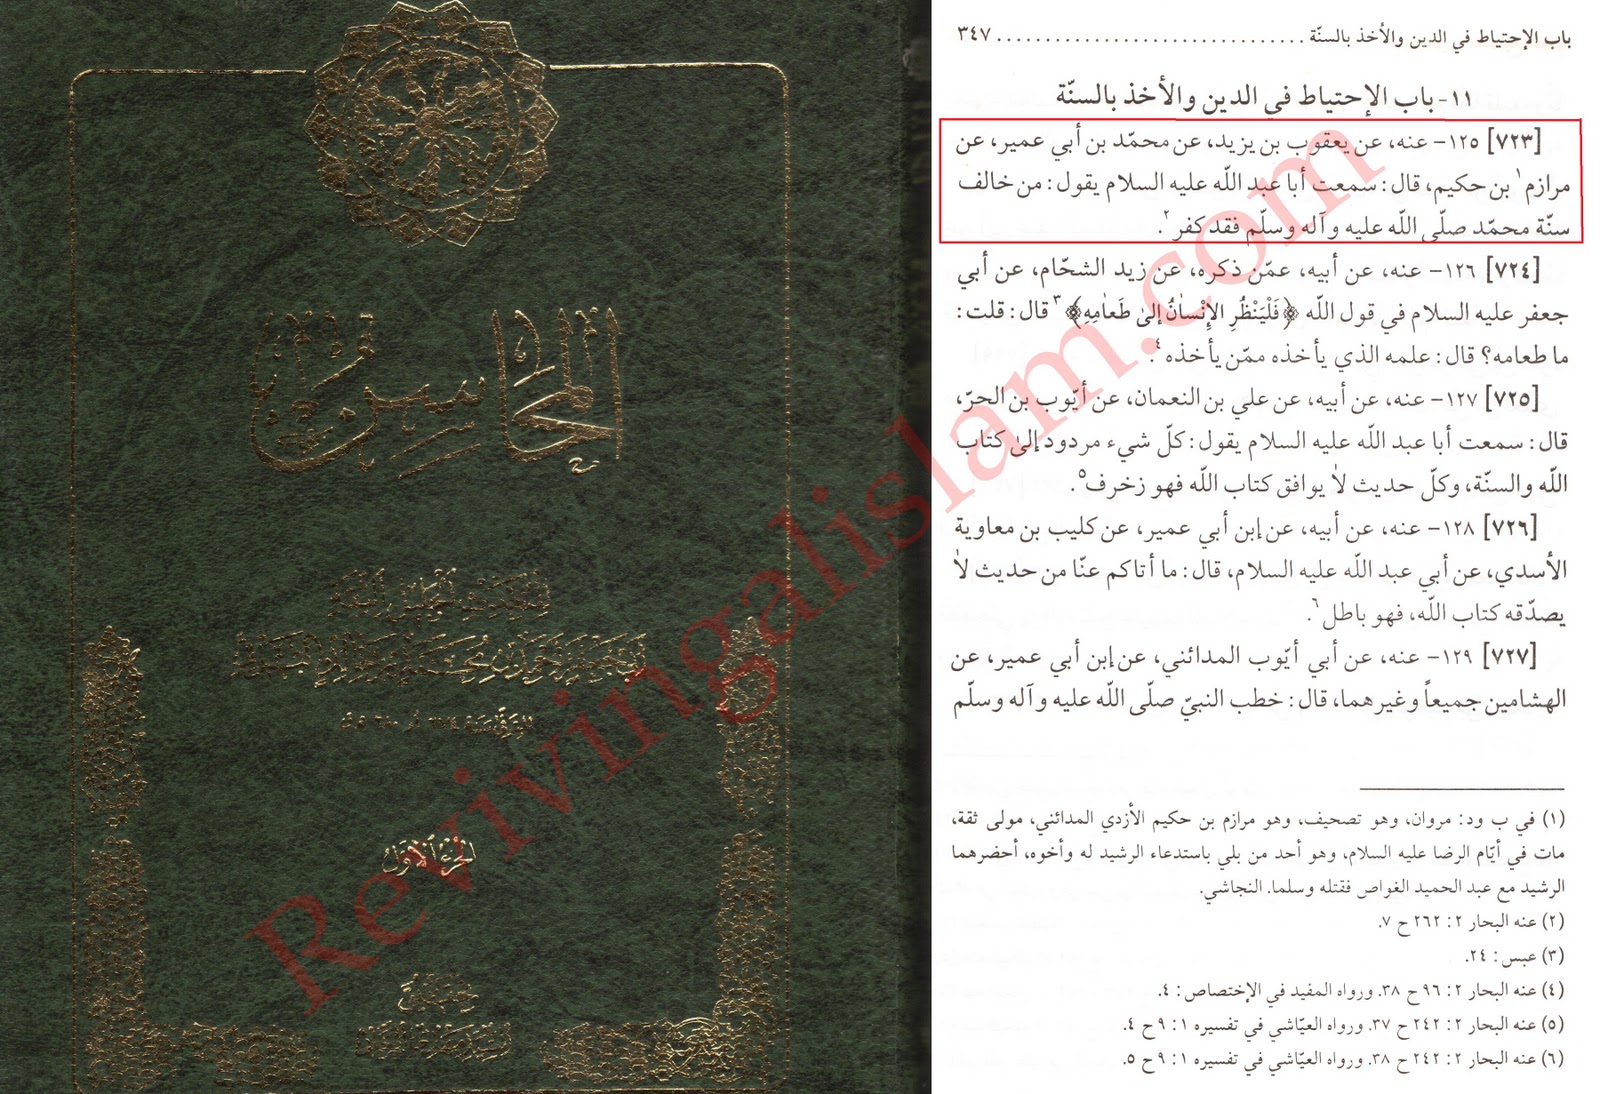 المحاسن
الجزء الأول
باب الإحتياط في الدين والأخذ بالسنّة ................................ ٣٤٧
١١- باب الإحتياط في الدين والأخذ بالسنّة
[٧٢٣] ١٢٥- عنه، عن يعقوب بن يزيد، عن محمّد بن أبي عمير، عن
مرازم١ بن حكيم، قال: سمعت أبا عبد اللّه عليه السلام يقول: من خالف
سنّة محمّد صلّى اللّه عليه وآله وسلّم فقد كفر٢.
[٧٢٤] ١٢٦- عنه، عن أبيه، عمّن ذكره، عن زيد الشحّام، عن أبي
جعفر عليه السلام في قول اللّه ﴿فَلْيَنْظُرِ الإِنْسانُ إِلىٰ طَعامِهِ﴾٣ قال: قلت:
ما طعامه؟ قال: علمه الذي يأخذه ممّن يأخذه٤.
[٧٢٥] ١٢٧- عنه، عن أبيه، عن علي بن النعمان، عن أيّوب بن الحرّ،
قال: سمعت أبا عبد اللّه عليه السلام يقول: كلّ شيء مردود إلىٰ كتاب
اللّه والسنّة، وكلّ حديث لا يوافق كتاب اللّه فهو زخرف٥.
[٧٢٦] ١٢٨- عنه، عن أبيه، عن إبن أبي عمير، عن كليب بن معاوية
الأسدي، عن أبي عبد اللّه عليه السلام، قال: ما أتاكم عنّا من حديث لا
يصدّقه كتاب اللّه، فهو باطل٦.
[٧٢٧] ١٢٩- عنه، عن أبي أيّوب المدائني، عن إبن أبي عمير، عن
الهشامين جميعاً وغيرهما، قال: خطب النبيّ صلّى اللّه عليه وآله وسلّم
(١) في ب ود: مروان، وهو تصحيف، وهو مرازم بن حكيم الأزدي المدائني، مولى ثقة،
مات في أيّام الرضا عليه السلام، وهو أحد من بلي باستدعاء الرشيد له وأخوه، أحضرهما
الرشيد مع عبد الحميد الغواص فقتله وسلما. النجاشي.
(٢) عنه البحار ٢: ٢٦٢ ح ٧.
(٣) عبس: ٢٤.
(٤) عنه البحار ٢: ٩٦ ح ٣٨. ورواه المفيد في الإختصاص: ٤.
(٥) عنه البحار ٢: ٢٤٢ ح ٣٧. ورواه العيّاشي في تفسيره ١: ٩ ح ٤.
(٦) عنه البحار ٢: ٢٤٢ ح ٣٨. ورواه العيّاشي في تفسيره ١: ٩ ح ٥.
Revivingalislam.com